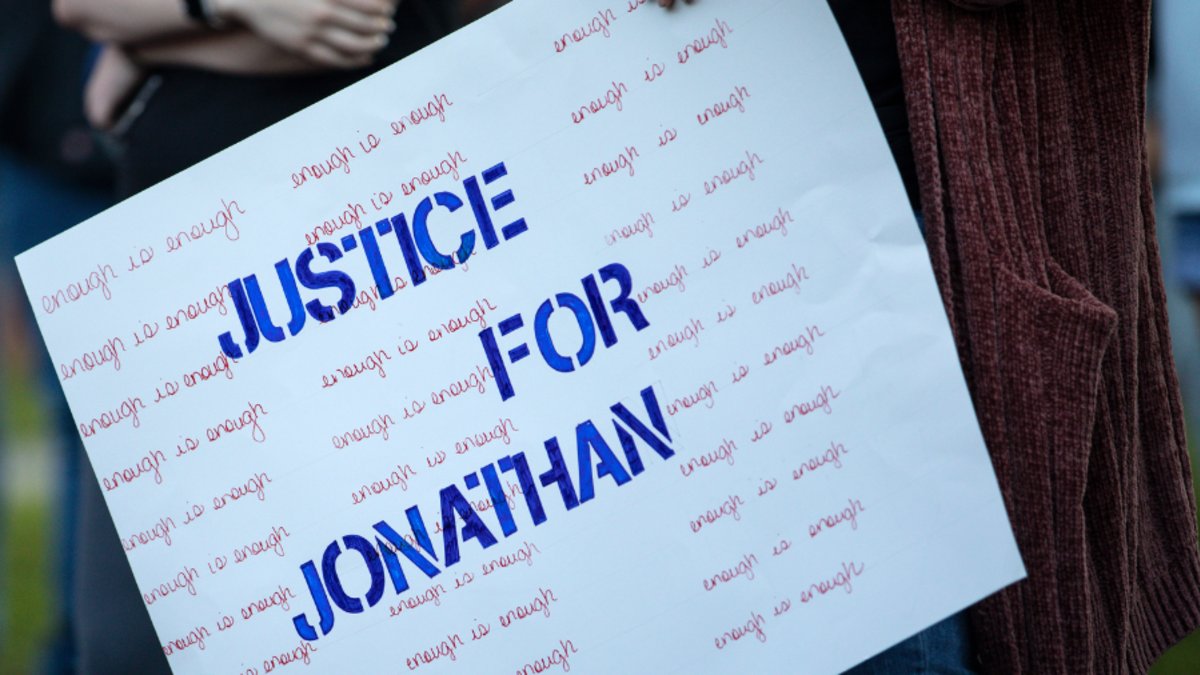 enough is enough enough is enough enough is
enough is enough enough is enough enough is enough
JUSTICE
enough is enough enough is enough enough is enough
enough is enough enough is enough enough is enough
FOR
enough is enough enough is enough enough is enough
enough is enough enough is enough enough is enough
JONATHAN
enough is enough enough is enough enough is enough
is enough enough is enough enough is enough
enough is enough enough is enough
enough enough is enough
enough is enough